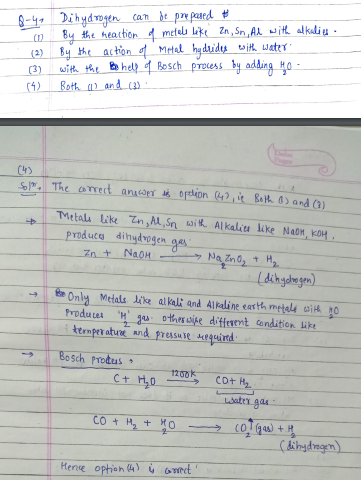 Q-4→ Dihydrogen can be prepared
(1) By the reaction of metals like Zn, Sn, Al with alkalies.
(2) By the action of Metal hydrides with water.
(3) with the help of Bosch process by adding H₂O.
(4) Both (1) and (3).
(4)
Solⁿ. The correct answer is option (4), ie Both (1) and (3)
⇒ Metals like Zn, Al, Sn with Alkalies like NaOH, KOH,
produces dihydrogen gas.
Zn + NaOH ⟶ Na₂ZnO₂ + H₂
(dihydrogen)
→ Only Metals like alkali and Alkaline earth metals with H₂O
Produces 'H₂' gas otherwise different condition like
temperature and pressure required.
→ Bosch process →
C + H₂O ⟶ 1200K CO + H₂
Water gas.
CO + H₂ + H₂O ⟶ CO₂↑ (gas) + H₂
(dihydrogen)
Hence option (4) is correct.